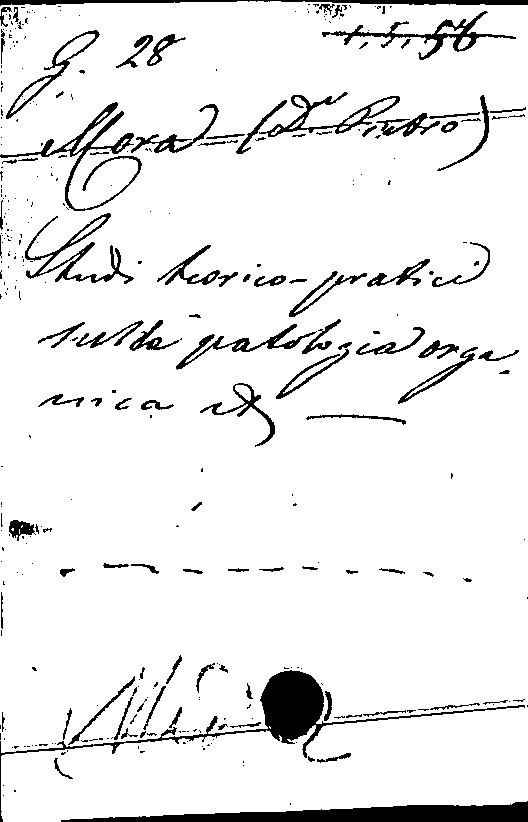 G. 28 1, 5, 56
Mora (Dr Pietro)
Studi teorico-pratici
sulla patologia orga-
nica &